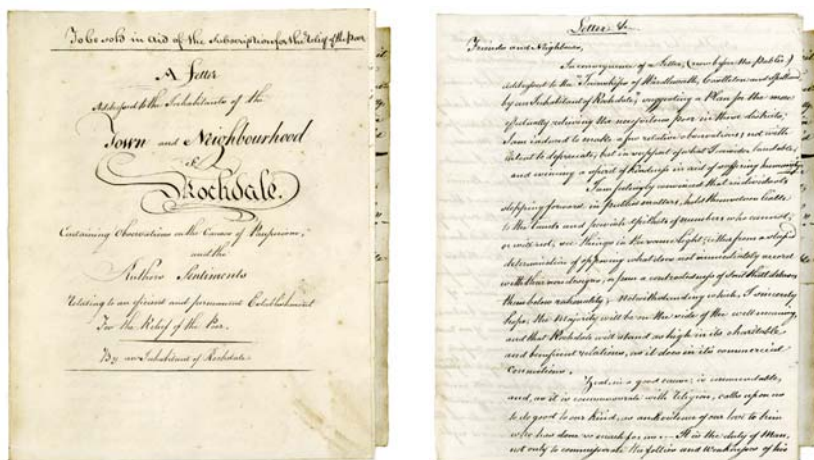 To be sold in aid of the Subscription for the Relief of the Poor
A Letter
Addressed to the Inhabitants of the
Town and Neighbourhood
of
Rochdale.
Containing Observations on the Causes of Pauperism,
and the
Authors Sentiments
Relating to an efficient and permanent Establishment
For the Relief of the Poor.
By an Inhabitant of Rochdale
Letter &c
Friends and Neighbours,
In consequence of a Letter, (now before the Public)
addressed to the Townships of Wardleworth, Castleton and Spotland
by an Inhabitant of Rochdale, suggesting a Plan for the more
effectually relieving the numerous poor in those districts,
I am induced to make a few relative observations, not with
intent to depreciate, but in support of what I consider laudable,
and evincing a spirit of kindness in aid of suffering humanity.
I am fully aware that individuals
stepping forward in public matters, hold themselves liable
to the taunts and private epithets of numbers who cannot,
or will not, see things in the same light; either from a stupid
determination of opposing what does not immediately accord
with their own designs, or from a contractedness of Soul that debases
them below rationality; Notwithstanding which, I sincerely
hope, the Majority will be on the side of the well meaning,
and that Rochdale will stand as high in its charitable
and beneficent relations, as it does in its commercial
Connections.
Zeal, in a good cause, is commendable,
and, as it is commensurate with Religion, calls upon us
to do good to our kind, as an evidence of our love to him
who has done so much for us. It is the duty of Man,
not only to commiserate the follies and weaknesses of his